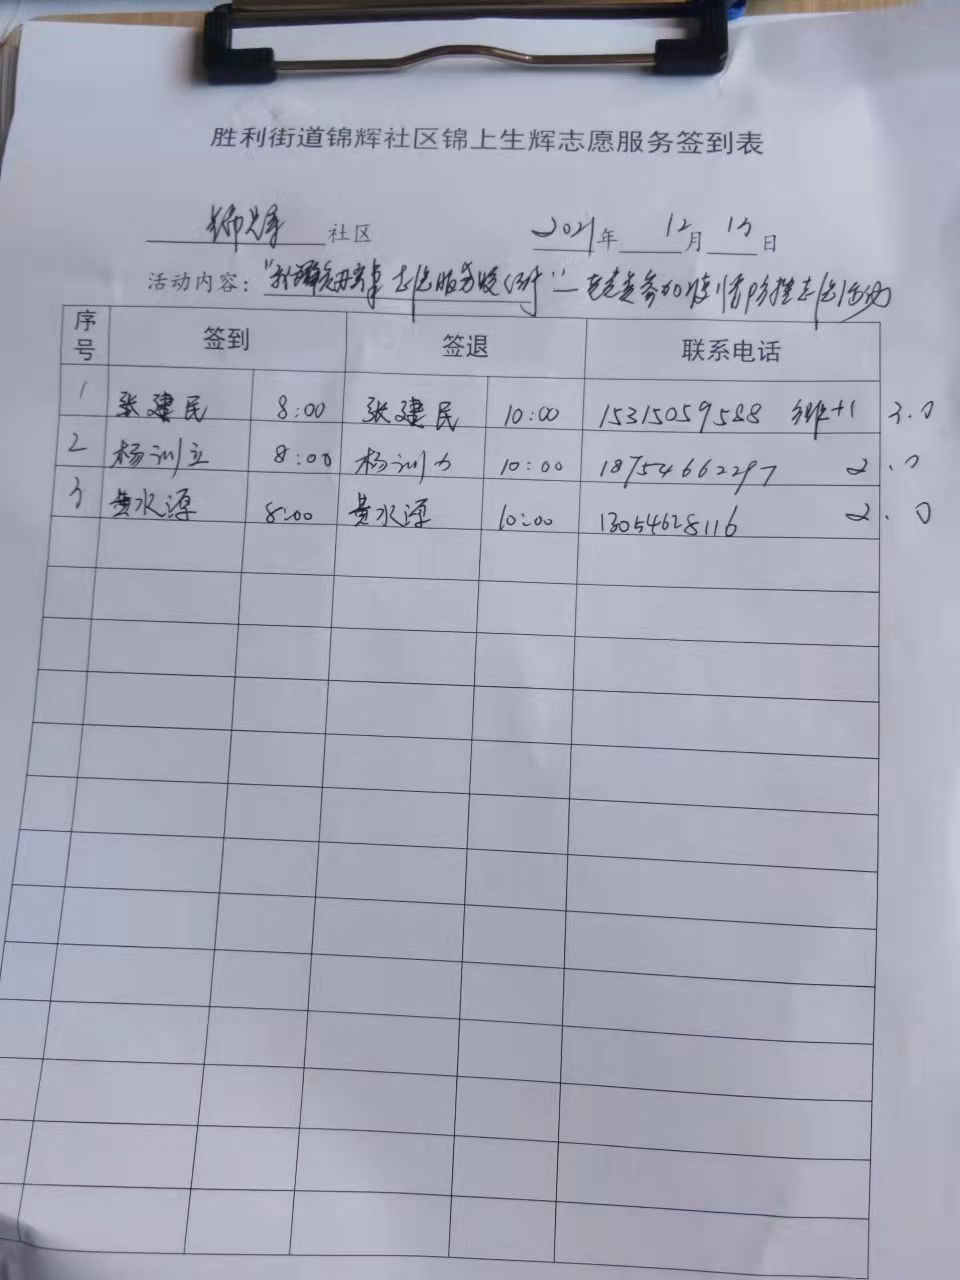 胜利街道锦辉社区锦上生辉志愿服务签到表
锦辉 社区 2021年 12月 13日
活动内容： 志愿服务 党员参加疫情防控志愿活动
序号 签到 签退 联系电话
1 张建民 8:00 张建民 10:00 15315059588 +1 3.0
2 杨训立 8:00 杨训力 10:00 18754662297 2.0
3 黄水源 8:00 黄水源 10:00 13054628116 2.0